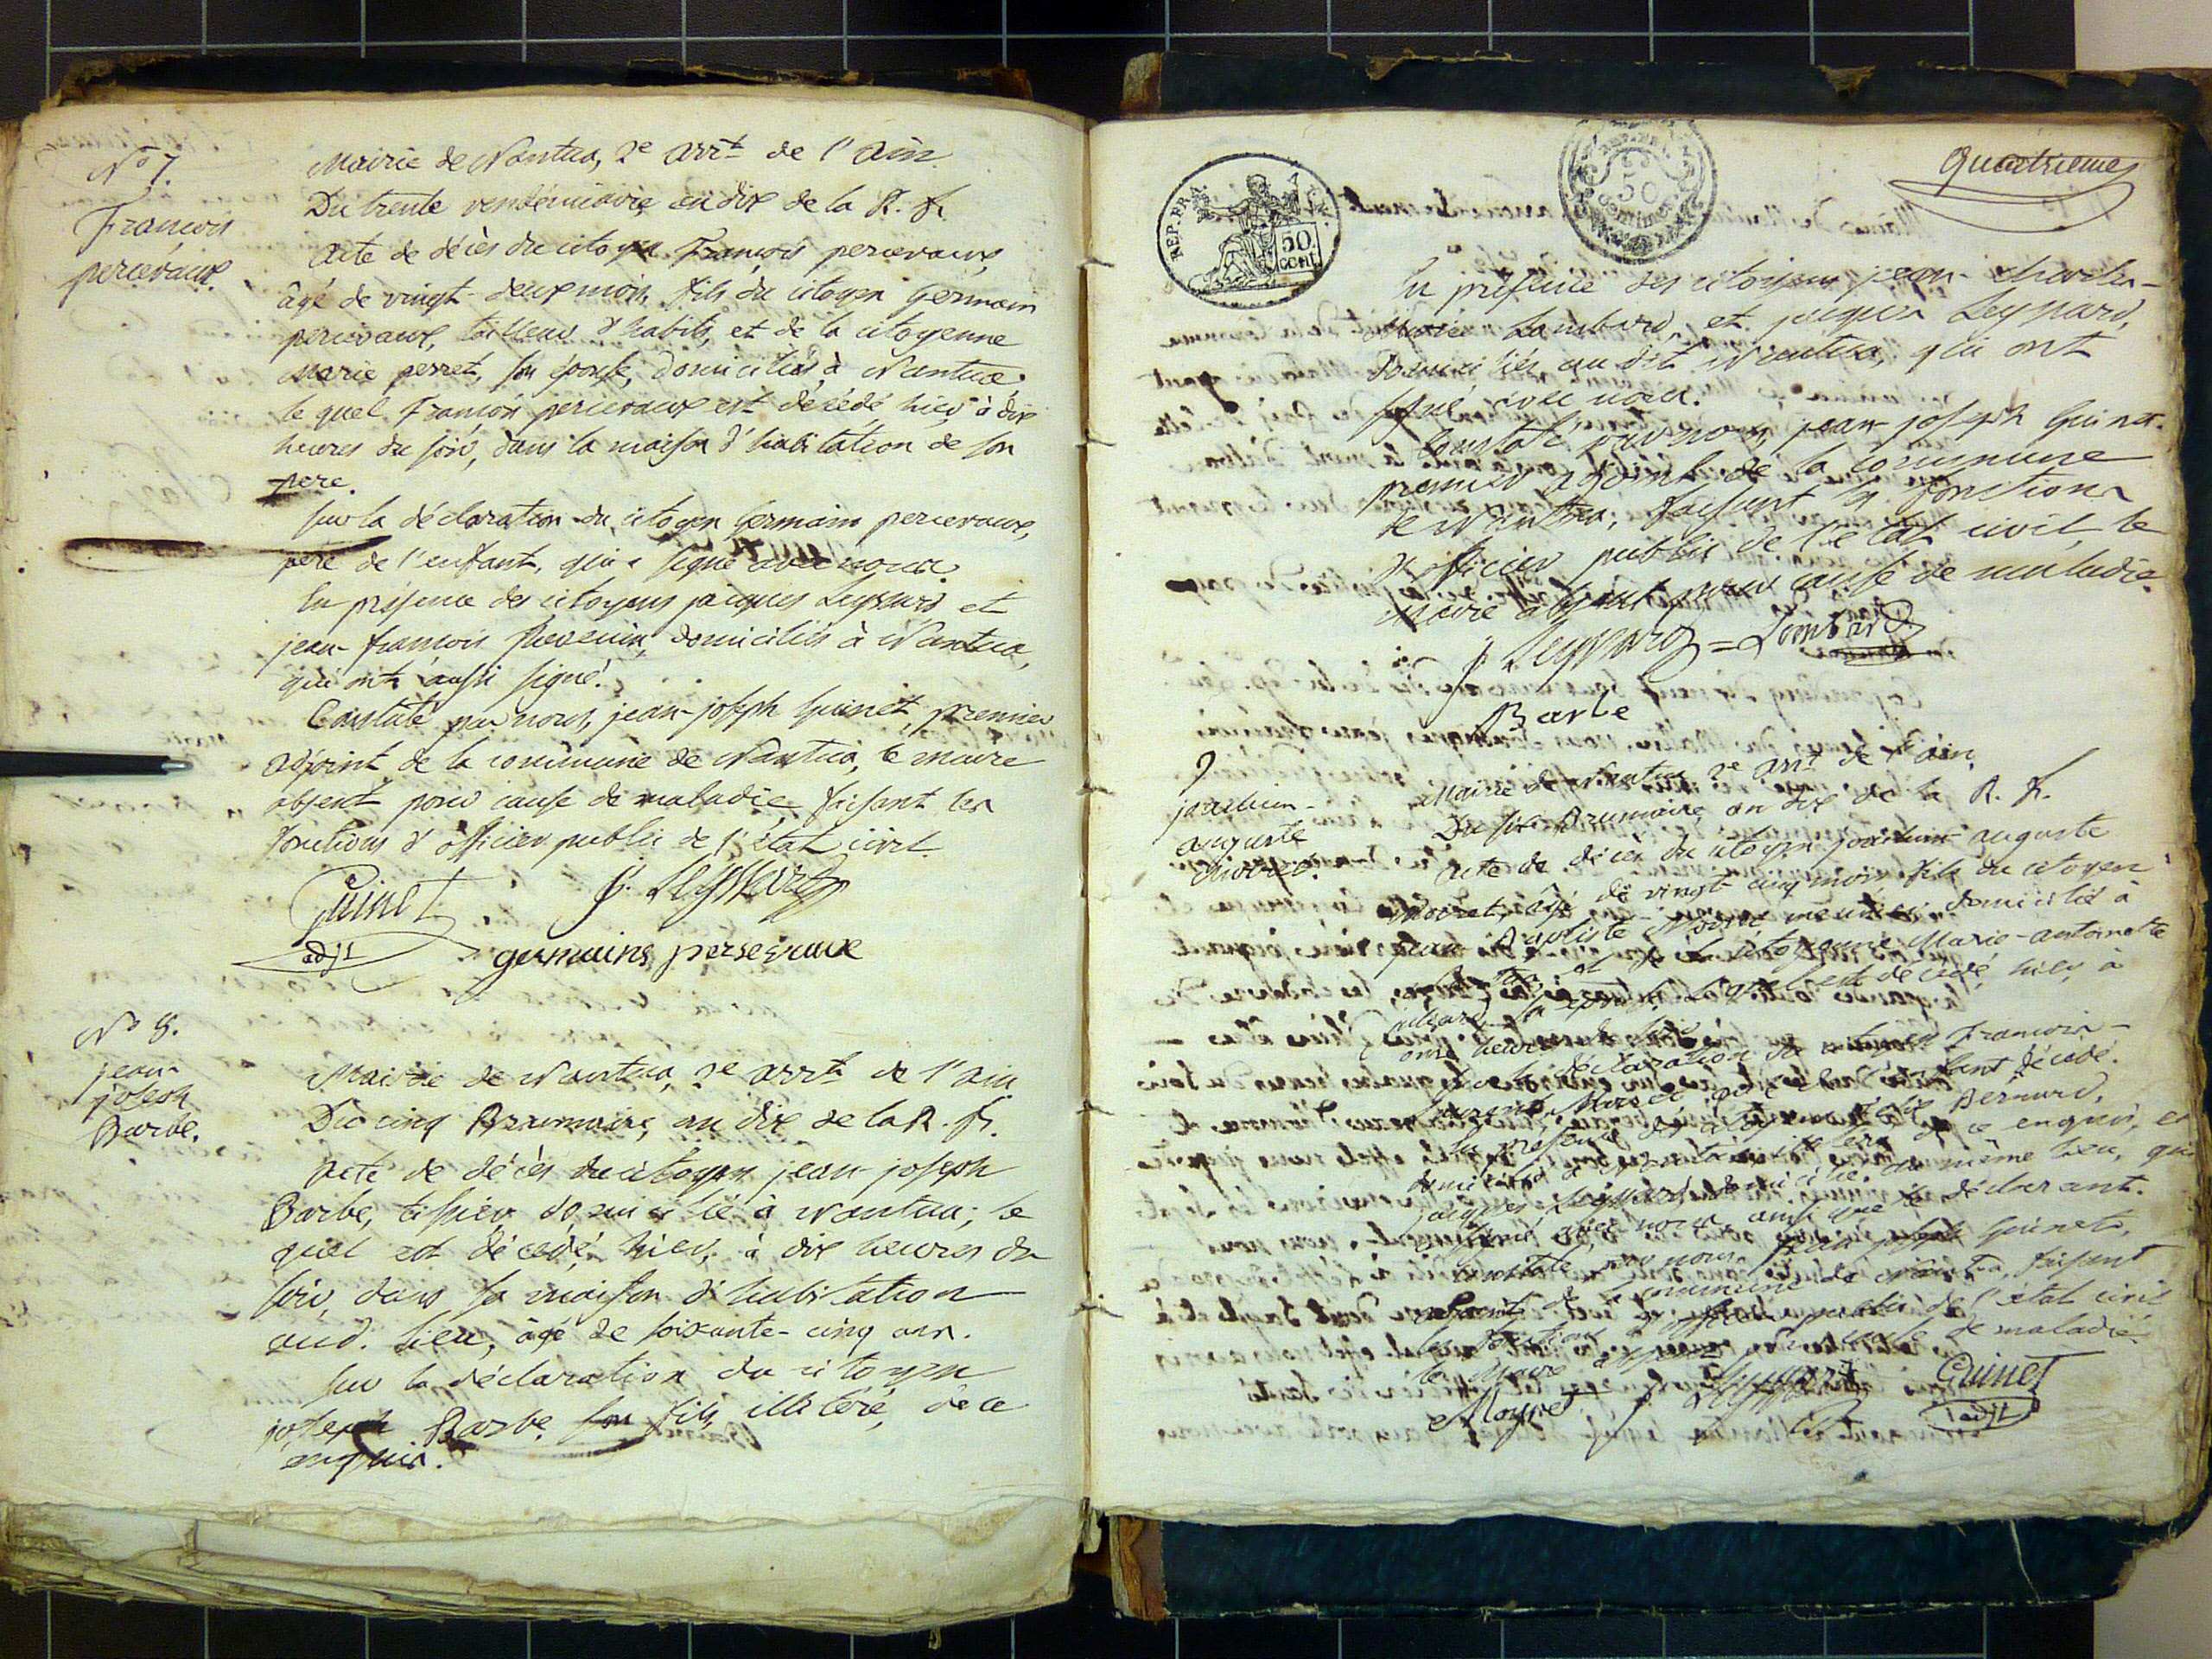 N° 7.
François
percevaux.
Mairie de Nantua, 2e arrt de l'Ain
Du trente vendémiaire an dix de la R. fr.
Acte de décès du citoyen François percevaux,
âgé de vingt-deux mois, fils du citoyen Germain
percevaux, tailleur d'habits, et de la citoyenne
Marie perret, son épouse, domiciliés à Nantua.
le quel François percevaux est décédé hier, à dix
heures du soir, dans la maison d'habitation de son
pere.
Sur la déclaration du citoyen Germain percevaux,
père de l'enfant, qui a signé avec nous.
En présence des citoyens jacques Leyssard et
jean-françois domiciliés à Nantua,
qui ont aussi signé.
Constaté par nous, jean-joseph Guinet, premier
adjoint de la commune de Nantua, le maire
absent pour cause de maladie, faisant les
fonctions d'officier public de l'état civil.
Guinet J. Leyssard
adjt germains persevaux
N° 8.
jean-
joseph
Barbe.
Mairie de Nantua, 2e arrt de l'Ain
Du cinq Brumaire, an dix de la R. fr.
Acte de décès du citoyen jean-joseph
Barbe, tissier, domicilié à Nantua; le
quel est décédé, hier, à dix heures du
soir, dans sa maison d'habitation
aud. lieu, âgé de soixante-cinq ans.
Sur la déclaration du citoyen
joseph Barbe son fils, illitéré, de ce
enquis.
REP. FRA.
50
cent.
50
centimes
Quatrieme
En présence des citoyens jean-charles-
Marie Lombard, et jacques Leyssard,
domiciliés au dit Nantua, qui ont
signé avec nous.
Constaté par nous, jean-joseph Guinet
premier adjoint de la commune
de Nantua, faisant les fonctions
d'officier public de l'état civil, le
maire absent pour cause de maladie.
J. Leyssard = Lombard
Barbe
9
joachim-
auguste
Mairie de Nantua 2e arrt de l'ain,
Du six Brumaire an dix de la R. fr.
Acte de décès du citoyen joachim-auguste
âgé de vingt-cinq mois, fils du citoyen
jean-Baptiste domicilié à
et de la citoyenne Marie-antoinette
son épouse. Lequel est décédé, hier, à
onze heures
Sur la déclaration du citoyen François-
Laurent de l'enfant décédé.
En présence Bernard,
domicilié à de ce enquis, et
jacques Leyssard, domicilié au même lieu, qui
a signé avec nous, ainsi que le déclarant.
Constaté par nous, jean-joseph Guinet,
adjoint de la commune de Nantua, faisant
les fonctions d'officier public de l'état civil
le Maire absent pour cause de maladie.
J. Leyssard Guinet
1 adjt